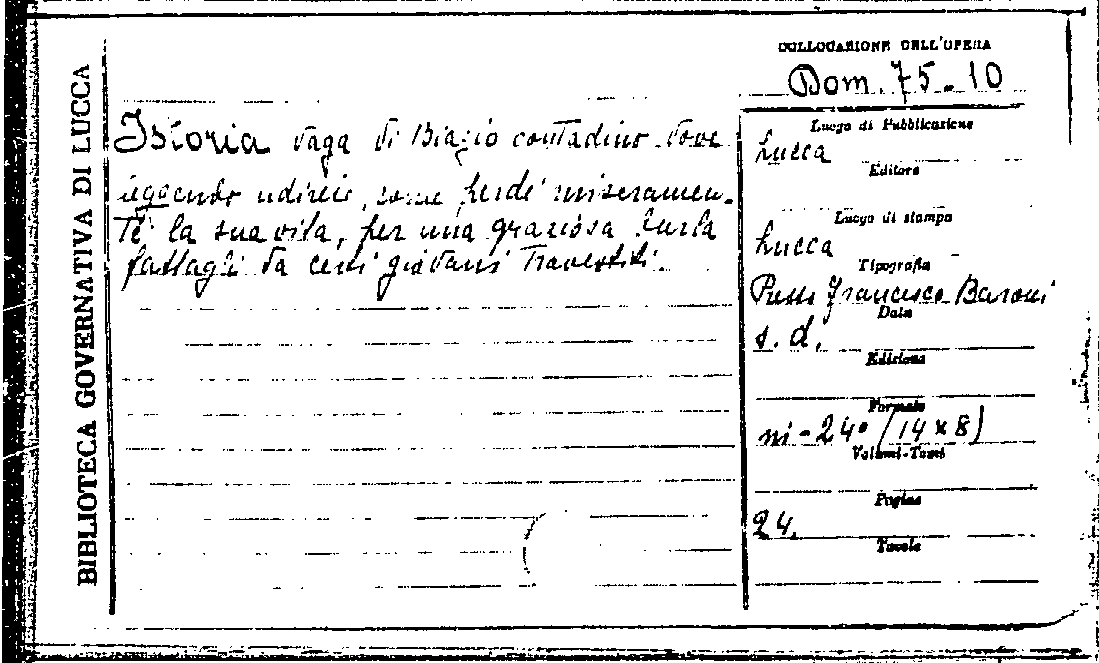 BIBLIOTECA GOVERNATIVA DI LUCCA
Istoria vaga di Biagio contadino dove
leggendo udirete, come perdé miseramen-
te la sua vita, per una graziosa burla
fattagli da certi giovani travestiti.
COLLOCAZIONE DELL'OPERA
Dom. 75.10
Luogo di Pubblicazione
Lucca
Editore
Luogo di stampa
Lucca
Tipografia
Presso Francesco Baroni
Data
s. d.
Edizione
Formato
in-24° (14 x 8)
Volumi-Tomi
Pagine
24.
Tavole